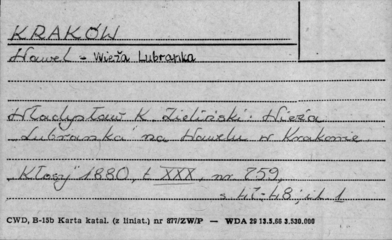 KRAKÓW
Wawel - Wieża Lubranka
Władysław K. Zieliński: Wieża
Lubranka na Wawelu w Krakowie
„Kłosy" 1880, t. XXX, nr 759,
s. 47-48; il. 1
CWD, B-15b Karta katal. (z liniat.) nr 877/ZW/P — WDA 29 13.5.66 3.530.000